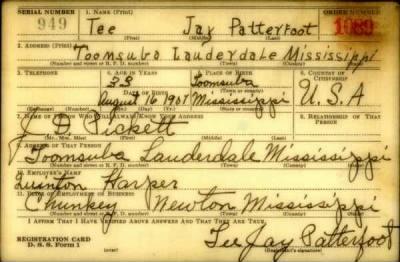 SERIAL NUMBER 1. NAME (Print) ORDER NUMBER
949 Tee Jay Patterfoot 1089
(First) (Middle) (Last)
2. ADDRESS (Print)
Toomsuba Lauderdale Mississippi
(Number and street or R. F. D. number) (Town) (County) (State)
3. TELEPHONE 4. AGE IN YEARS 5. PLACE OF BIRTH 6. COUNTRY OF CITIZENSHIP
Toomsuba
(Town or county)
DATE OF BIRTH
August 16 Mississippi U.S.A
(Exchange) (Number) (Mo.) (Day) (Yr.) (State or country)
7. NAME OF PERSON WHO WILL ALWAYS KNOW YOUR ADDRESS 8. RELATIONSHIP OF THAT PERSON
J. D. Pickett
(Mr., Mrs., Miss) (First) (Middle) (Last)
9. ADDRESS OF THAT PERSON
Toomsuba Lauderdale Mississippi
(Number and street or R. F. D. number) (Town) (County) (State)
10. EMPLOYER'S NAME
Quinton Harper
11. PLACE OF EMPLOYMENT OR BUSINESS
Chunkey Newton Mississippi
(Number and street or R. F. D. number) (Town) (County) (State)
I AFFIRM THAT I HAVE VERIFIED ABOVE ANSWERS AND THAT THEY ARE TRUE.
REGISTRATION CARD
D. S. S. FORM 1
Tee Jay Patterfoot